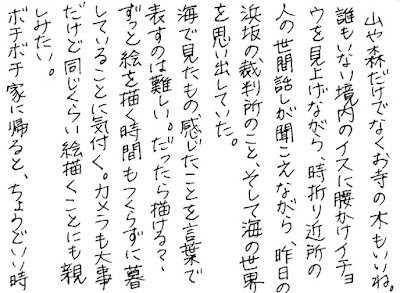 山や森だけでなくお寺の木もいいね。
誰もいない境内のイスに腰かけイチョ
ウを見上げながら、時折り近所の
人の世間話しが聞こえながら、昨日の
浜坂の裁判所のこと、そして海の世界
を思い出していた。
海で見たもの感じたことを言葉で
表すのは難しい。だったら描ける?、
ずっと絵を描く時間もつくらずに暮
していることに気付く。カメラも大事
だけど同じくらい絵描くことにも親
しみたい。
ボチボチ家に帰ると、ちょうどいい時